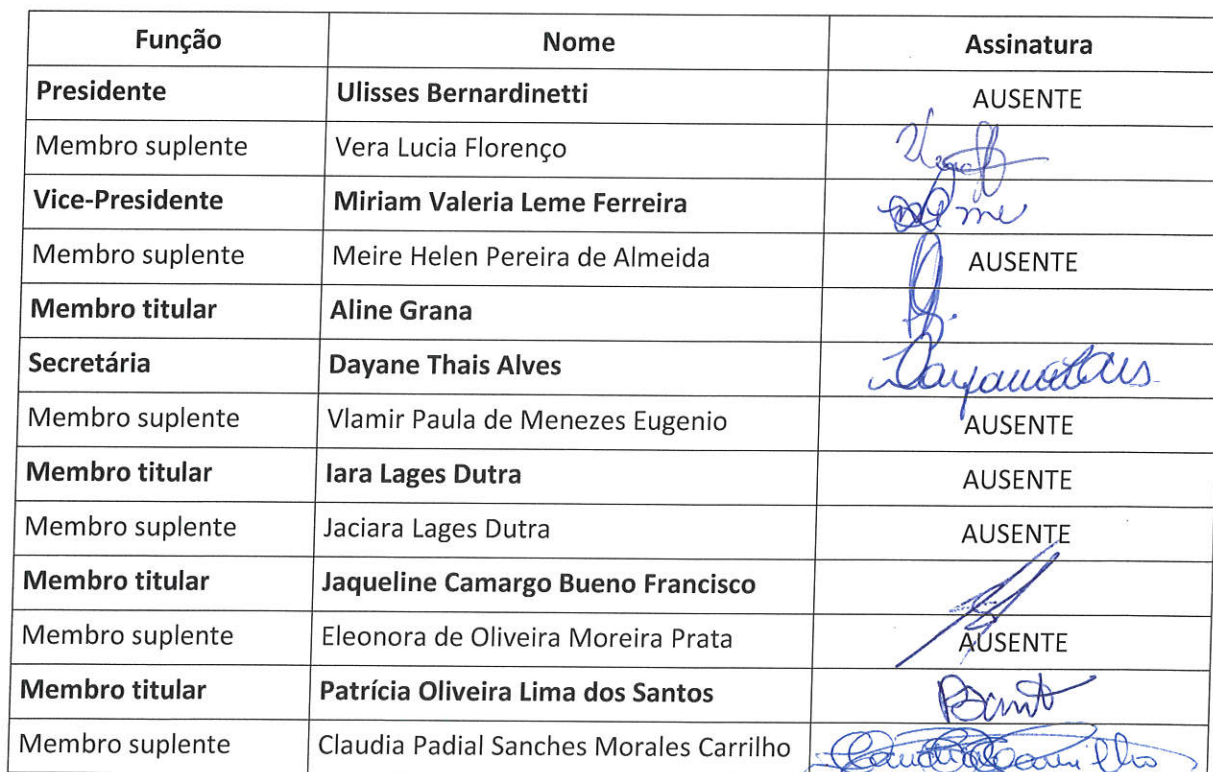 Função Nome Assinatura
Presidente Ulisses Bernardinetti AUSENTE
Membro suplente Vera Lucia Florenço
Vice-Presidente Miriam Valeria Leme Ferreira
Membro suplente Meire Helen Pereira de Almeida AUSENTE
Membro titular Aline Grana
Secretária Dayane Thais Alves
Membro suplente Vlamir Paula de Menezes Eugenio AUSENTE
Membro titular Iara Lages Dutra AUSENTE
Membro suplente Jaciara Lages Dutra AUSENTE
Membro titular Jaqueline Camargo Bueno Francisco
Membro suplente Eleonora de Oliveira Moreira Prata AUSENTE
Membro titular Patrícia Oliveira Lima dos Santos
Membro suplente Claudia Padial Sanches Morales Carrilho